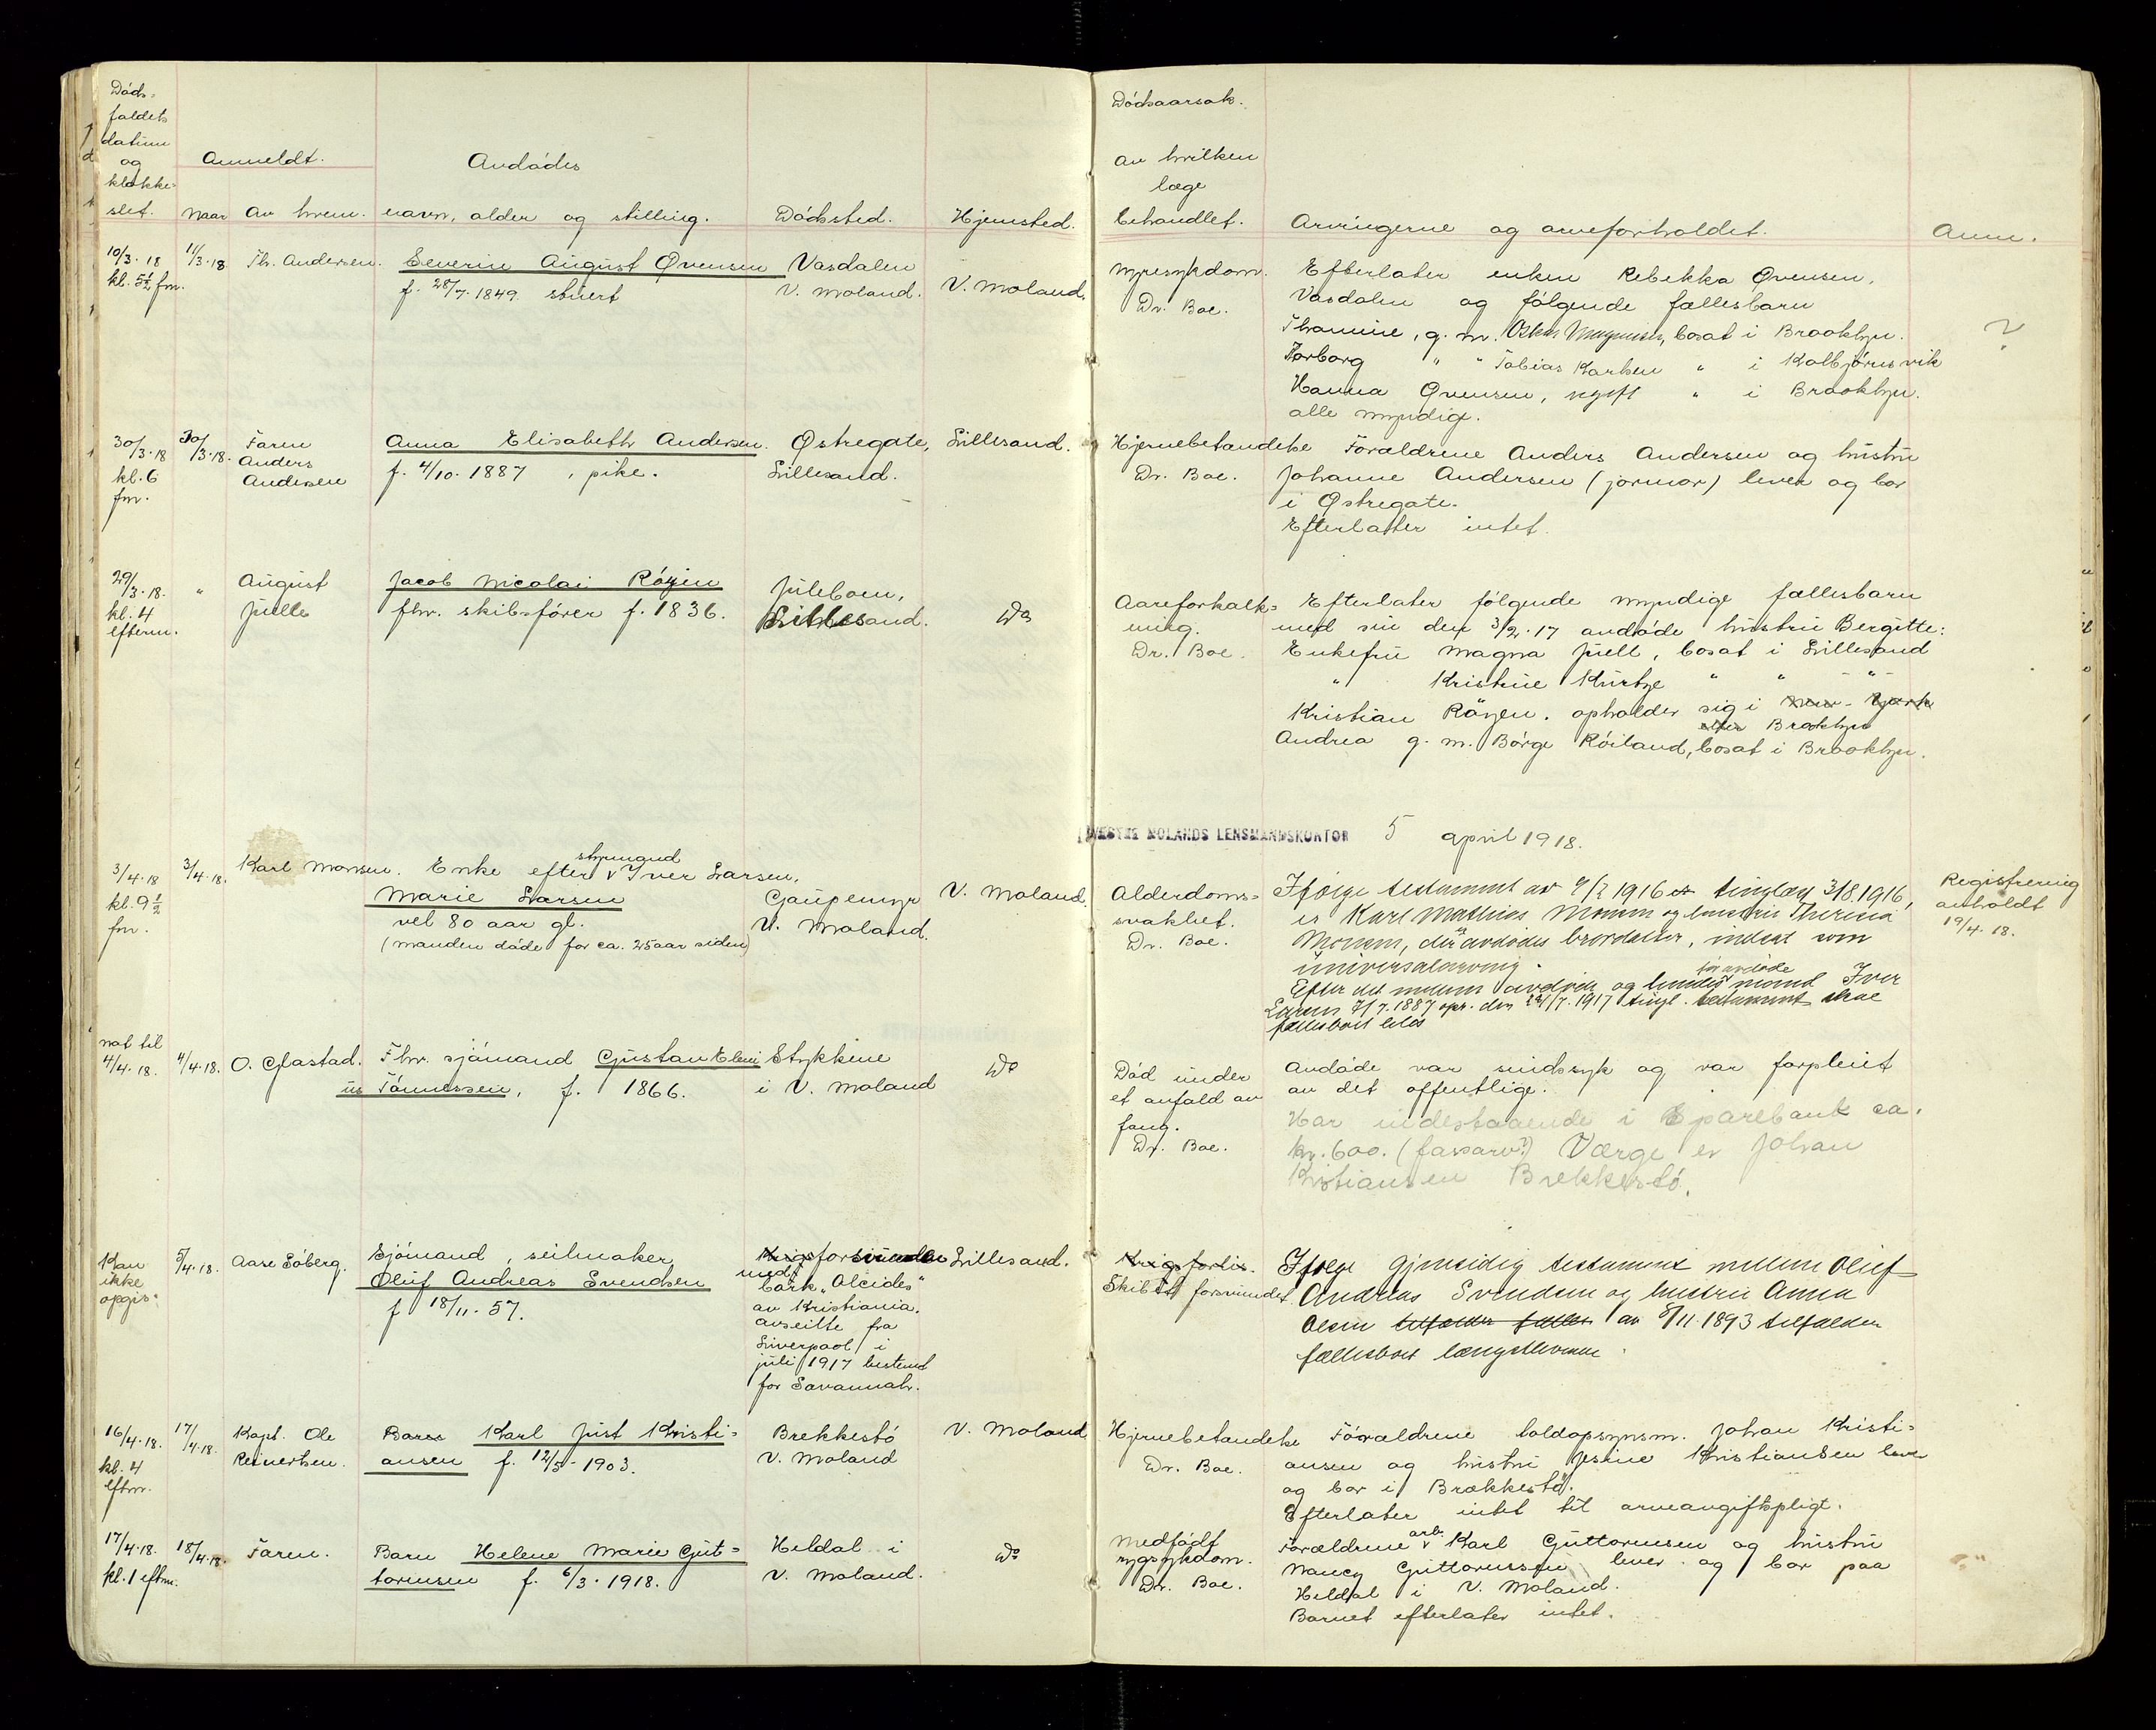 Døds-
faldets
datum
og
klokke-
slet.
Anmeldt.
naar
Av hvem.
Avdødes
navn, alder og stilling.
Dødssted.
Hjemsted.
Dødsaarsak.
av hvilken
læge
behandlet.
Arvingerne og arveforholdet.
Anm.
10/3.18
kl. 5½ fm.
11/3.18
Th. Andersen.
Severin August Øvensen
f. 28/7.1849. stuert
Vasdalen
V. Moland.
V. Moland.
Nyresykdom.
Dr. Boe.
Efterlater enken Rebekka Øvensen,
Vasdalen og følgende fællesbarn
Thomine, g. m. Oskar Magnusen, bosat i Brooklyn.
Torborg " " Tobias Karlsen " i Kolbjørnsvik
Hanna Øvensen, ugift " i Brooklyn.
alle myndige.
?
30/3.18
kl. 6
fm.
30/3.18.
Faren
Anders
Andersen
Anna Elisabeth Andersen.
f. 4/10.1887, pike.
Østregate,
Lillesand.
Lillesand.
Hjernebetændelse
Dr. Boe.
Forældrene Anders Andersen og hustru
Johanne Andersen (jormor) lever og bor
i Østregate.
Efterlatter intet.
29/3.18.
kl. 4
efterm.
"
August
Juell
Jacob Nicolai Røyen
fhv. skibsfører f. 1836.
Lillesand.
Do
Aareforkalk-
ning.
Dr. Boe.
Efterlater følgende myndige fællesbarn
med sin den 3/2.17 avdøde hustru Bergitte:
Enkefru Magna Juell, bosat i Lillesand
" Kristine Kurtze " " - " -
Kristian Røyen. opholder sig i New-York
eller Brooklyn
Andrea g. m. Børge Røiland, bosat i Brooklyn.
VESTRE MOLANDS LENSMANDSKONTOR 5 april 1918.
3/4.18
kl. 9½
fm.
3/4.18.
Karl Monsen.
Enke efter styrmand Iver Larsen,
Marie Larsen
vel 80 aar gl.
(manden døde for ca. 25 aar siden)
Gaupemyr
V. Moland.
V. Moland.
Alderdoms-
svakhet.
Dr. Boe.
Ifølge testament av 9/2 1916 tinglæst 3/8.1916,
er Karl Mathias Monsen og hustru Therina
Monsen, der er avdødes brordatter, indsat som
universalarving.
Efter det mellem avdøde og hendes før avdøde mand Iver
Larsen 7/7.1887 opr. den 7.1917 tingl. testament skal
fællesboet
Registrering
avholdt
19/4.18.
nat til
4/4.18.
4/4.18.
O. Glastad.
Fhv. sjømand Gustav Eleni
us Tønnessen, f. 1866.
Stykkene
i V. Moland
Do
Død under
et anfald av
fang.
Dr. Boe.
Avdøde var sindssyk og var forpleiet
av det offentlige.
Har indestaaende i Sparebank ca.
kr. 600. (farsarv?) Værge er Johan
Kristiansen Brekkestø.
Kan
ikke
opgis.
5/4.18.
Aase Søberg.
Sjømand, seilmaker
Oluf Andreas Svendsen
f 18/11.57.
Krigsforsvundet
med
bark „Alcides"
av Kristiania.
avseilte fra
Liverpool i
juli 1917 bestemt
for Savannah.
Lillesand.
Krigsforlis.
Skibet forsvundet.
Ifølge gjensidig testament mellem Oluf
Andreas Svendsen og hustru Anna
Olsen tilfalder fælles av 8/11.1893 tilfalder
fællesboet længstlevende.
16/4.18.
kl. 4
eftm.
17/4.18.
Kapt. Ole
Reinertsen.
Barn Karl Just Kristi-
ansen f. 12/5-1903.
Brekkestø
V. Moland
V. Moland
Hjernebetændelse
Dr. Boe.
Forældrene toldopsynsm. Johan Kristi-
ansen og hustru Jesine Kristiansen lever
og bor i Brækkestø.
Efterlater intet til arveavgiftspligt.
17/4.18.
kl. 1 eftm.
18/4.18.
Faren.
Barn Helene Marie Gut-
tormsen f. 6/3.1918.
Heldal i
V. Moland.
Do
Medfødt
rygsykdom.
Dr. Boe.
Forældrene arb. Karl Guttormsen og hustru
Nancy Guttormssen lever og bor paa
Heldal i V. Moland.
Barnet efterlater intet.